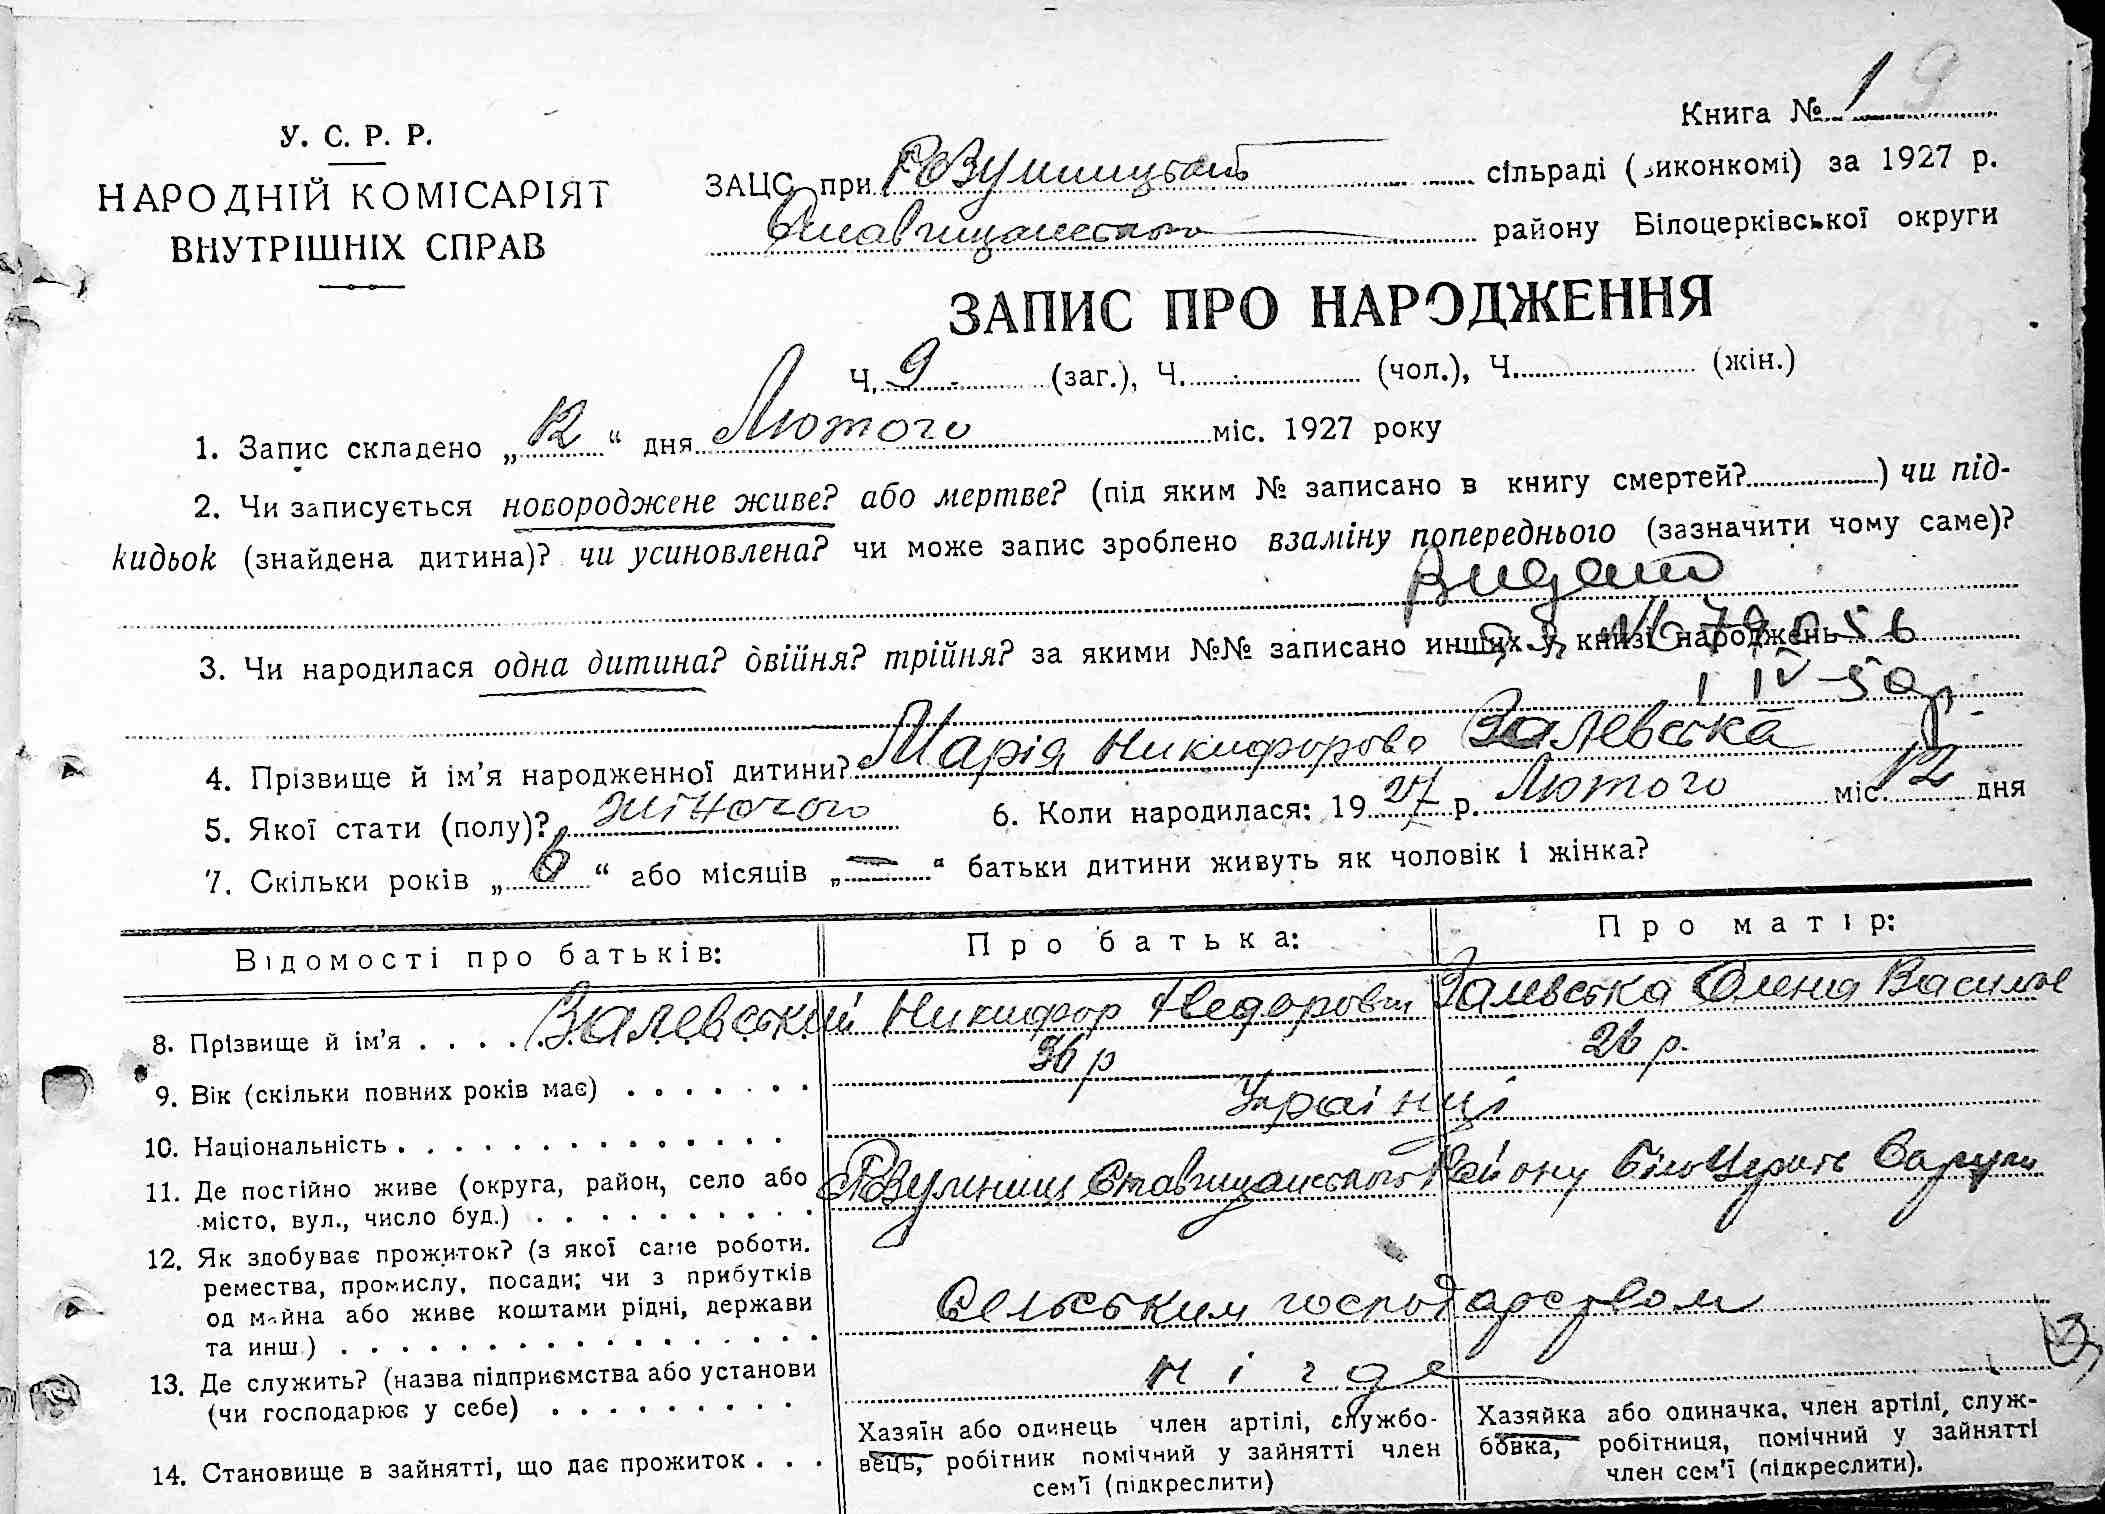 Книга № 1 9
У. С. Р. Р.
НАРОДНІЙ КОМІСАРІЯТ
ВНУТРІШНІХ СПРАВ
ЗАЦС при сільраді (виконкомі) за 1927 р.
Ставищанського району Білоцерківської округи
ЗАПИС ПРО НАРОДЖЕННЯ
Ч. 9 (заг.), Ч. (чол.), Ч. (жін.)
1. Запис складено „12“ дня Лютого міс. 1927 року
2. Чи записується новороджене живе? або мертве? (під яким № записано в книгу смертей?) чи під-
кидьок (знайдена дитина)? чи усиновлена? чи може запис зроблено взаміну попереднього (зазначити чому саме)?
Видано
3. Чи народилася одна дитина? двійня? трійня? за якими №№ записано инших у книзі народжень
1 IV-50р
4. Прізвище й ім'я народженної дитини? Марія Никифорова Залевська
5. Якої стати (полу)? жіночого 6. Коли народилася: 1927 р. Лютого міс. 12 дня
7. Скільки років „6“ або місяців „—“ батьки дитини живуть як чоловік і жінка?
Відомості про батьків: Про батька: Про матір:
8. Прізвище й ім'я . . . . Залевський Никифор Залевська Олена
9. Вік (скільки повних років має) . . . . . . . 26 р.
10. Національність . . . . . . . . . . . . . . Українці
11. Де постійно живе (округа, район, село або
місто, вул., число буд.) . . . . . . . . . . Ставищанського Району
12. Як здобуває прожиток? (з якої саме роботи.
ремества, промислу, посади; чи з прибутків
од майна або живе коштами рідні, держави
та инш.) . . . . . . . . . . . . . . . . Сельським господарством
13. Де служить? (назва підприємства або установи
(чи господарює у себе) . . . . . . . . . нігде
14. Становище в зайнятті, що дає прожиток . . .
Хазяїн або одинець член артілі, службо-
вець, робітник помічний у зайнятті член
сем'ї (підкреслити)
Хазяйка або одиначка, член артілі, служ-
бовка, робітниця, помічний у зайнятті
член сем'ї (підкреслити).